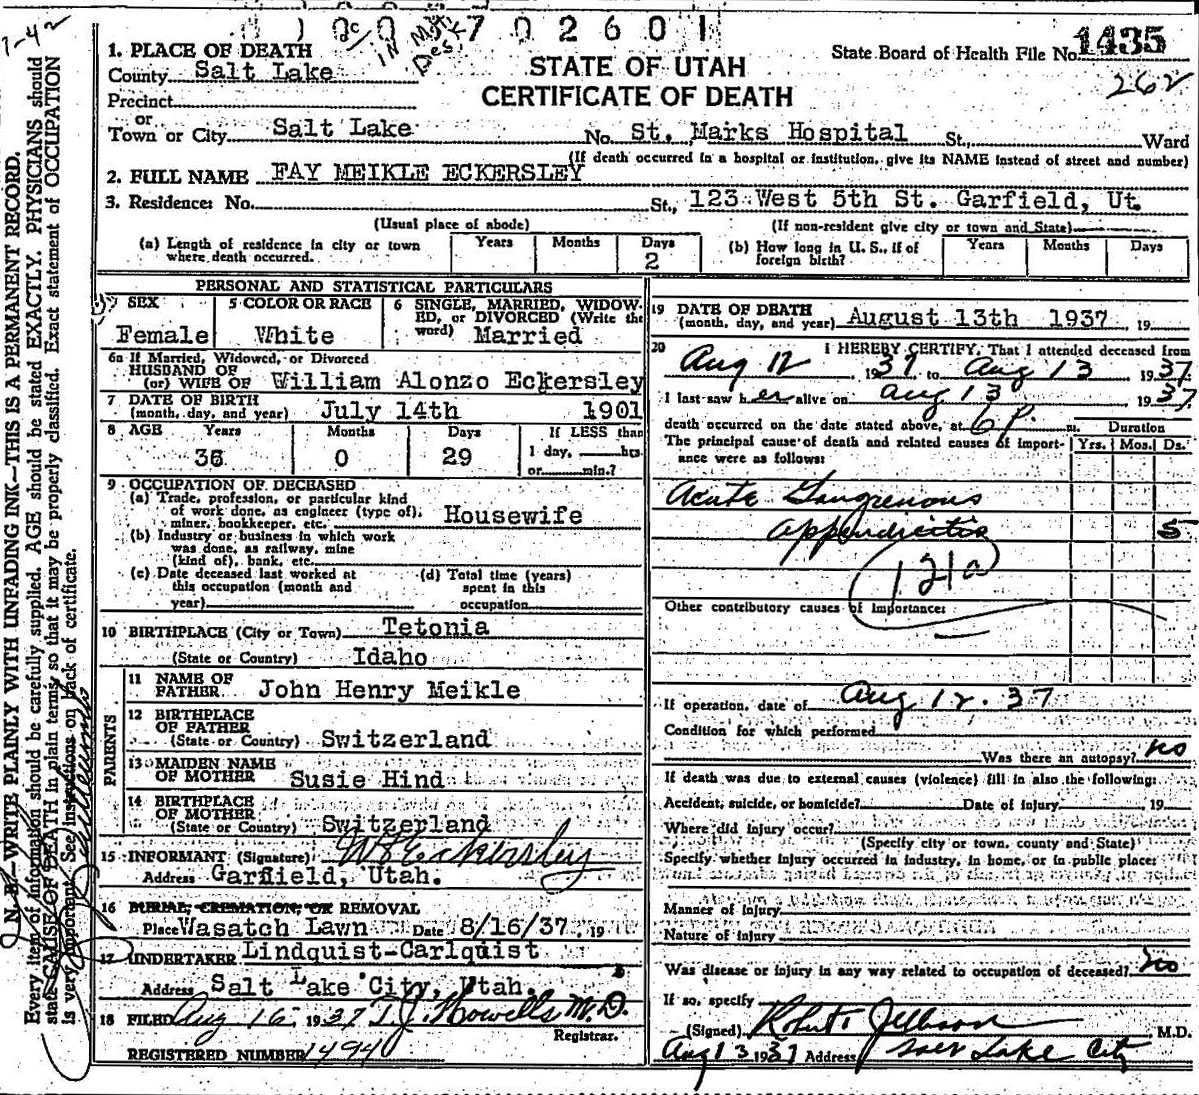 1-42
1 0 0 7 0 2 6 0 1
IN My Desk
1. PLACE OF DEATH
County Salt Lake
Precinct
or
Town or City Salt Lake
STATE OF UTAH
CERTIFICATE OF DEATH
State Board of Health File No. 1435
262
No. St. Marks Hospital St., Ward
(If death occurred in a hospital or institution, give its NAME instead of street and number)
2. FULL NAME FAY MEIKLE ECKERSLEY
3. Residence: No. St., 123 West 5th St. Garfield, Ut.
(Usual place of abode) (If non-resident give city or town and State)
(a) Length of residence in city or town where death occurred. Years Months Days 2
(b) How long in U. S., if of foreign birth? Years Months Days
PERSONAL AND STATISTICAL PARTICULARS
SEX Female
5 COLOR OR RACE White
6 SINGLE, MARRIED, WIDOWED, or DIVORCED (Write the word) Married
6a If Married, Widowed, or Divorced
HUSBAND OF
(or) WIFE OF William Alonzo Eckersley
7 DATE OF BIRTH
(month, day, and year) July 14th 1901
8 AGE Years 36 Months 0 Days 29 If LESS than 1 day, hrs. or min.?
9 OCCUPATION OF DECEASED
(a) Trade, profession, or particular kind
of work done, as engineer (type of),
miner, bookkeeper, etc. Housewife
(b) Industry or business in which work
was done, as railway, mine
(kind of), bank, etc.
(c) Date deceased last worked at
this occupation (month and
year)
(d) Total time (years)
spent in this
occupation
10 BIRTHPLACE (City or Town) Tetonia
(State or Country) Idaho
PARENTS
11 NAME OF
FATHER John Henry Meikle
12 BIRTHPLACE
OF FATHER
(State or Country) Switzerland
13 MAIDEN NAME
OF MOTHER Susie Hind
14 BIRTHPLACE
OF MOTHER
(State or Country) Switzerland
15 INFORMANT (Signature) W E Eckersley
Address Garfield, Utah.
16 BURIAL, CREMATION, OR REMOVAL
Place Wasatch Lawn Date 8/16/37, 19
17 UNDERTAKER Lindquist-Carlquist
Address Salt Lake City, Utah.
18 FILED Aug 16, 1937 T. J. Howells M. D.
Registrar.
REGISTERED NUMBER 1494
19 DATE OF DEATH
(month, day, and year) August 13th 1937, 19
20 I HEREBY CERTIFY, That I attended deceased from
Aug 12 1937 to Aug 13 1937.
I last saw her alive on Aug 13 1937
death occurred on the date stated above, at 6 P. m. Duration
The principal cause of death and related causes of importance were as follows: Yrs. Mos. Ds.
Acute Gangrenous
appendicitis 5
121a
Other contributory causes of importance:
If operation, date of Aug 12. 37
Condition for which performed
Was there an autopsy? no
If death was due to external causes (violence) fill in also the following:
Accident, suicide, or homicide? Date of injury 19
Where did injury occur?
(Specify city or town, county and State)
Specify whether injury occurred in industry, in home, or in public place:
Manner of injury
Nature of injury
Was disease or injury in any way related to occupation of deceased? no
If so, specify
(Signed) M.D.
Aug 13 1937 Address Salt Lake City
N. B.—WRITE PLAINLY WITH UNFADING INK—THIS IS A PERMANENT RECORD.
Every item of information should be carefully supplied. AGE should be stated EXACTLY. PHYSICIANS should
state CAUSE OF DEATH in plain terms, so that it may be properly classified. Exact statement of OCCUPATION
is very important. See instructions on back of certificate.